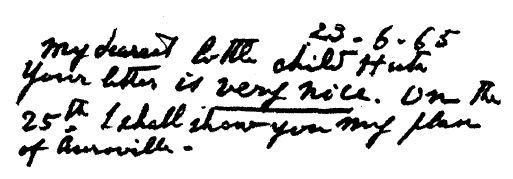 23-6-65
My dearest little child Huta
Your letter is very nice. On the
25th I shall show you my plan
of Auroville.